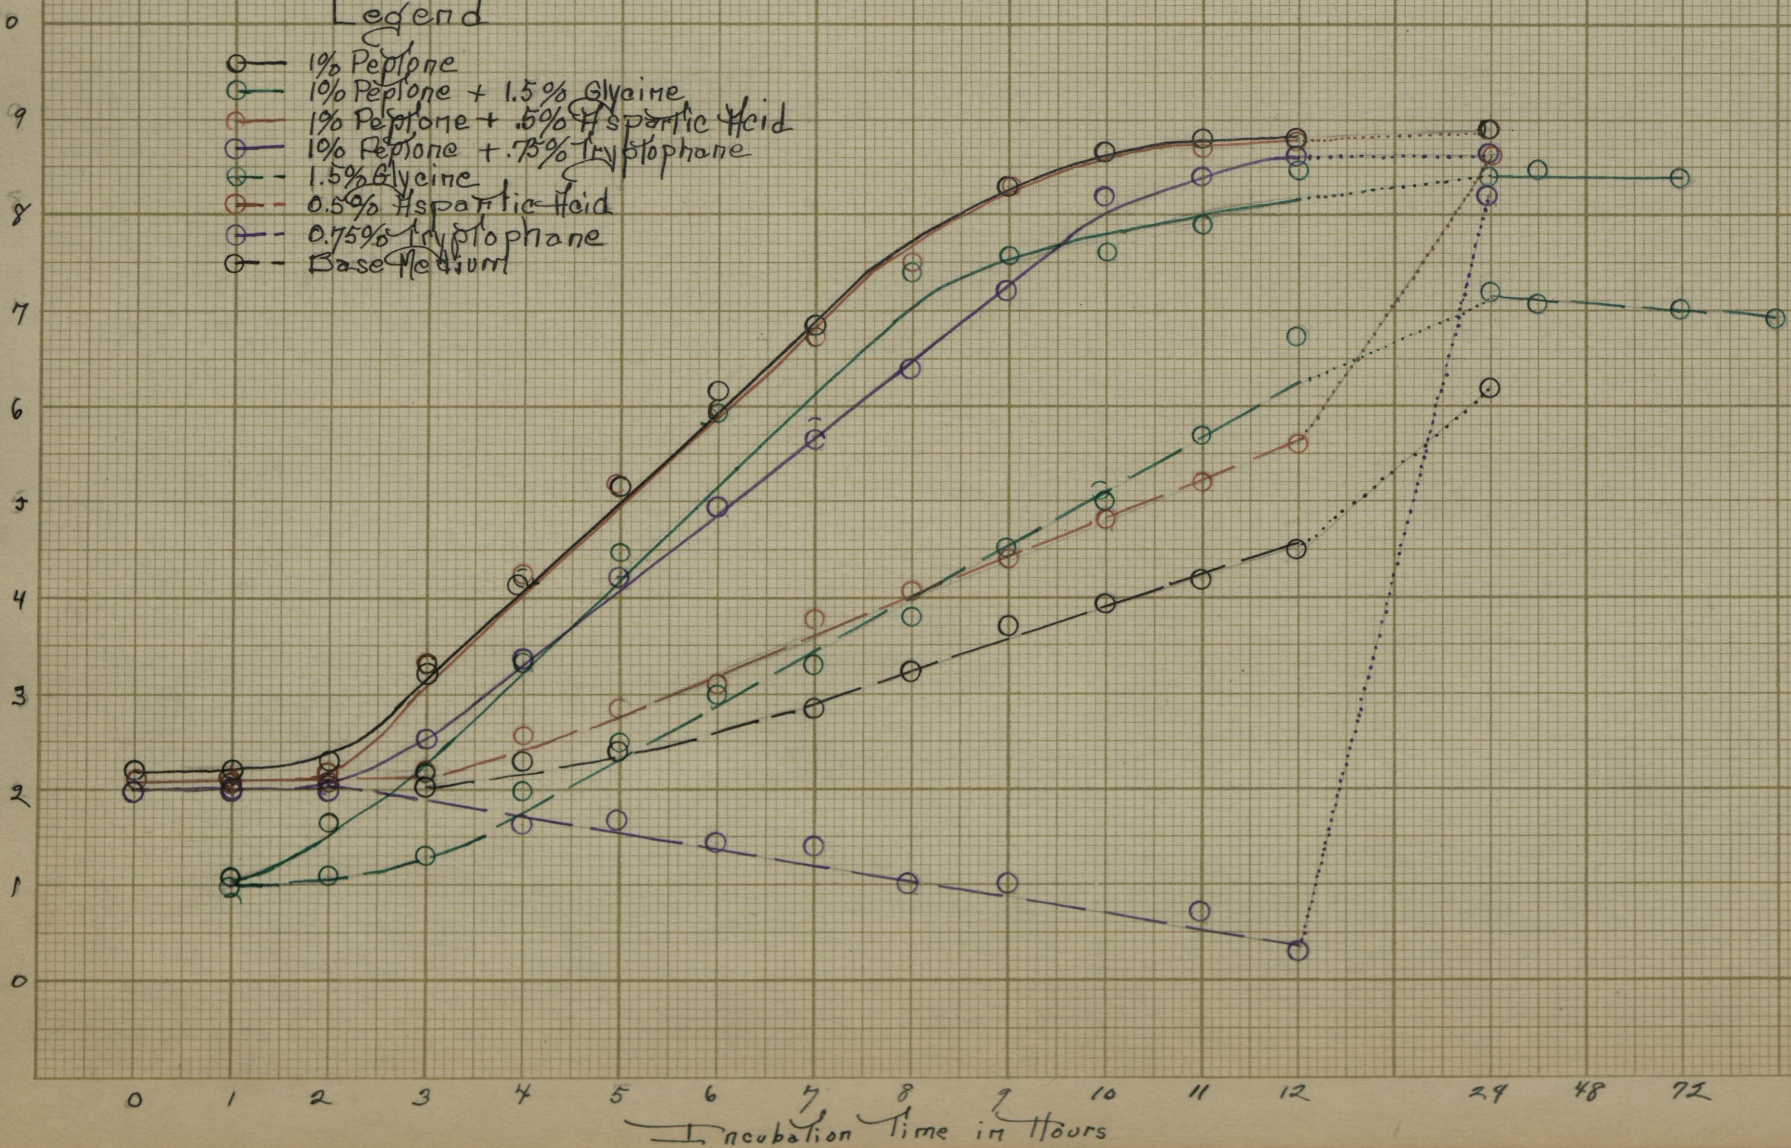 Legend
1% Peptone
1% Peptone + 1.5% Glycine
1% Peptone + .5% Aspartic Acid
1% Peptone + .75% Tryptophane
1.5% Glycine
0.5% Aspartic Acid
0.75% Tryptophane
Base Medium
0
9
8
7
6
5
4
3
2
1
0
0 1 2 3 4 5 6 7 8 9 10 11 12 24 48 72
Incubation Time in Hours